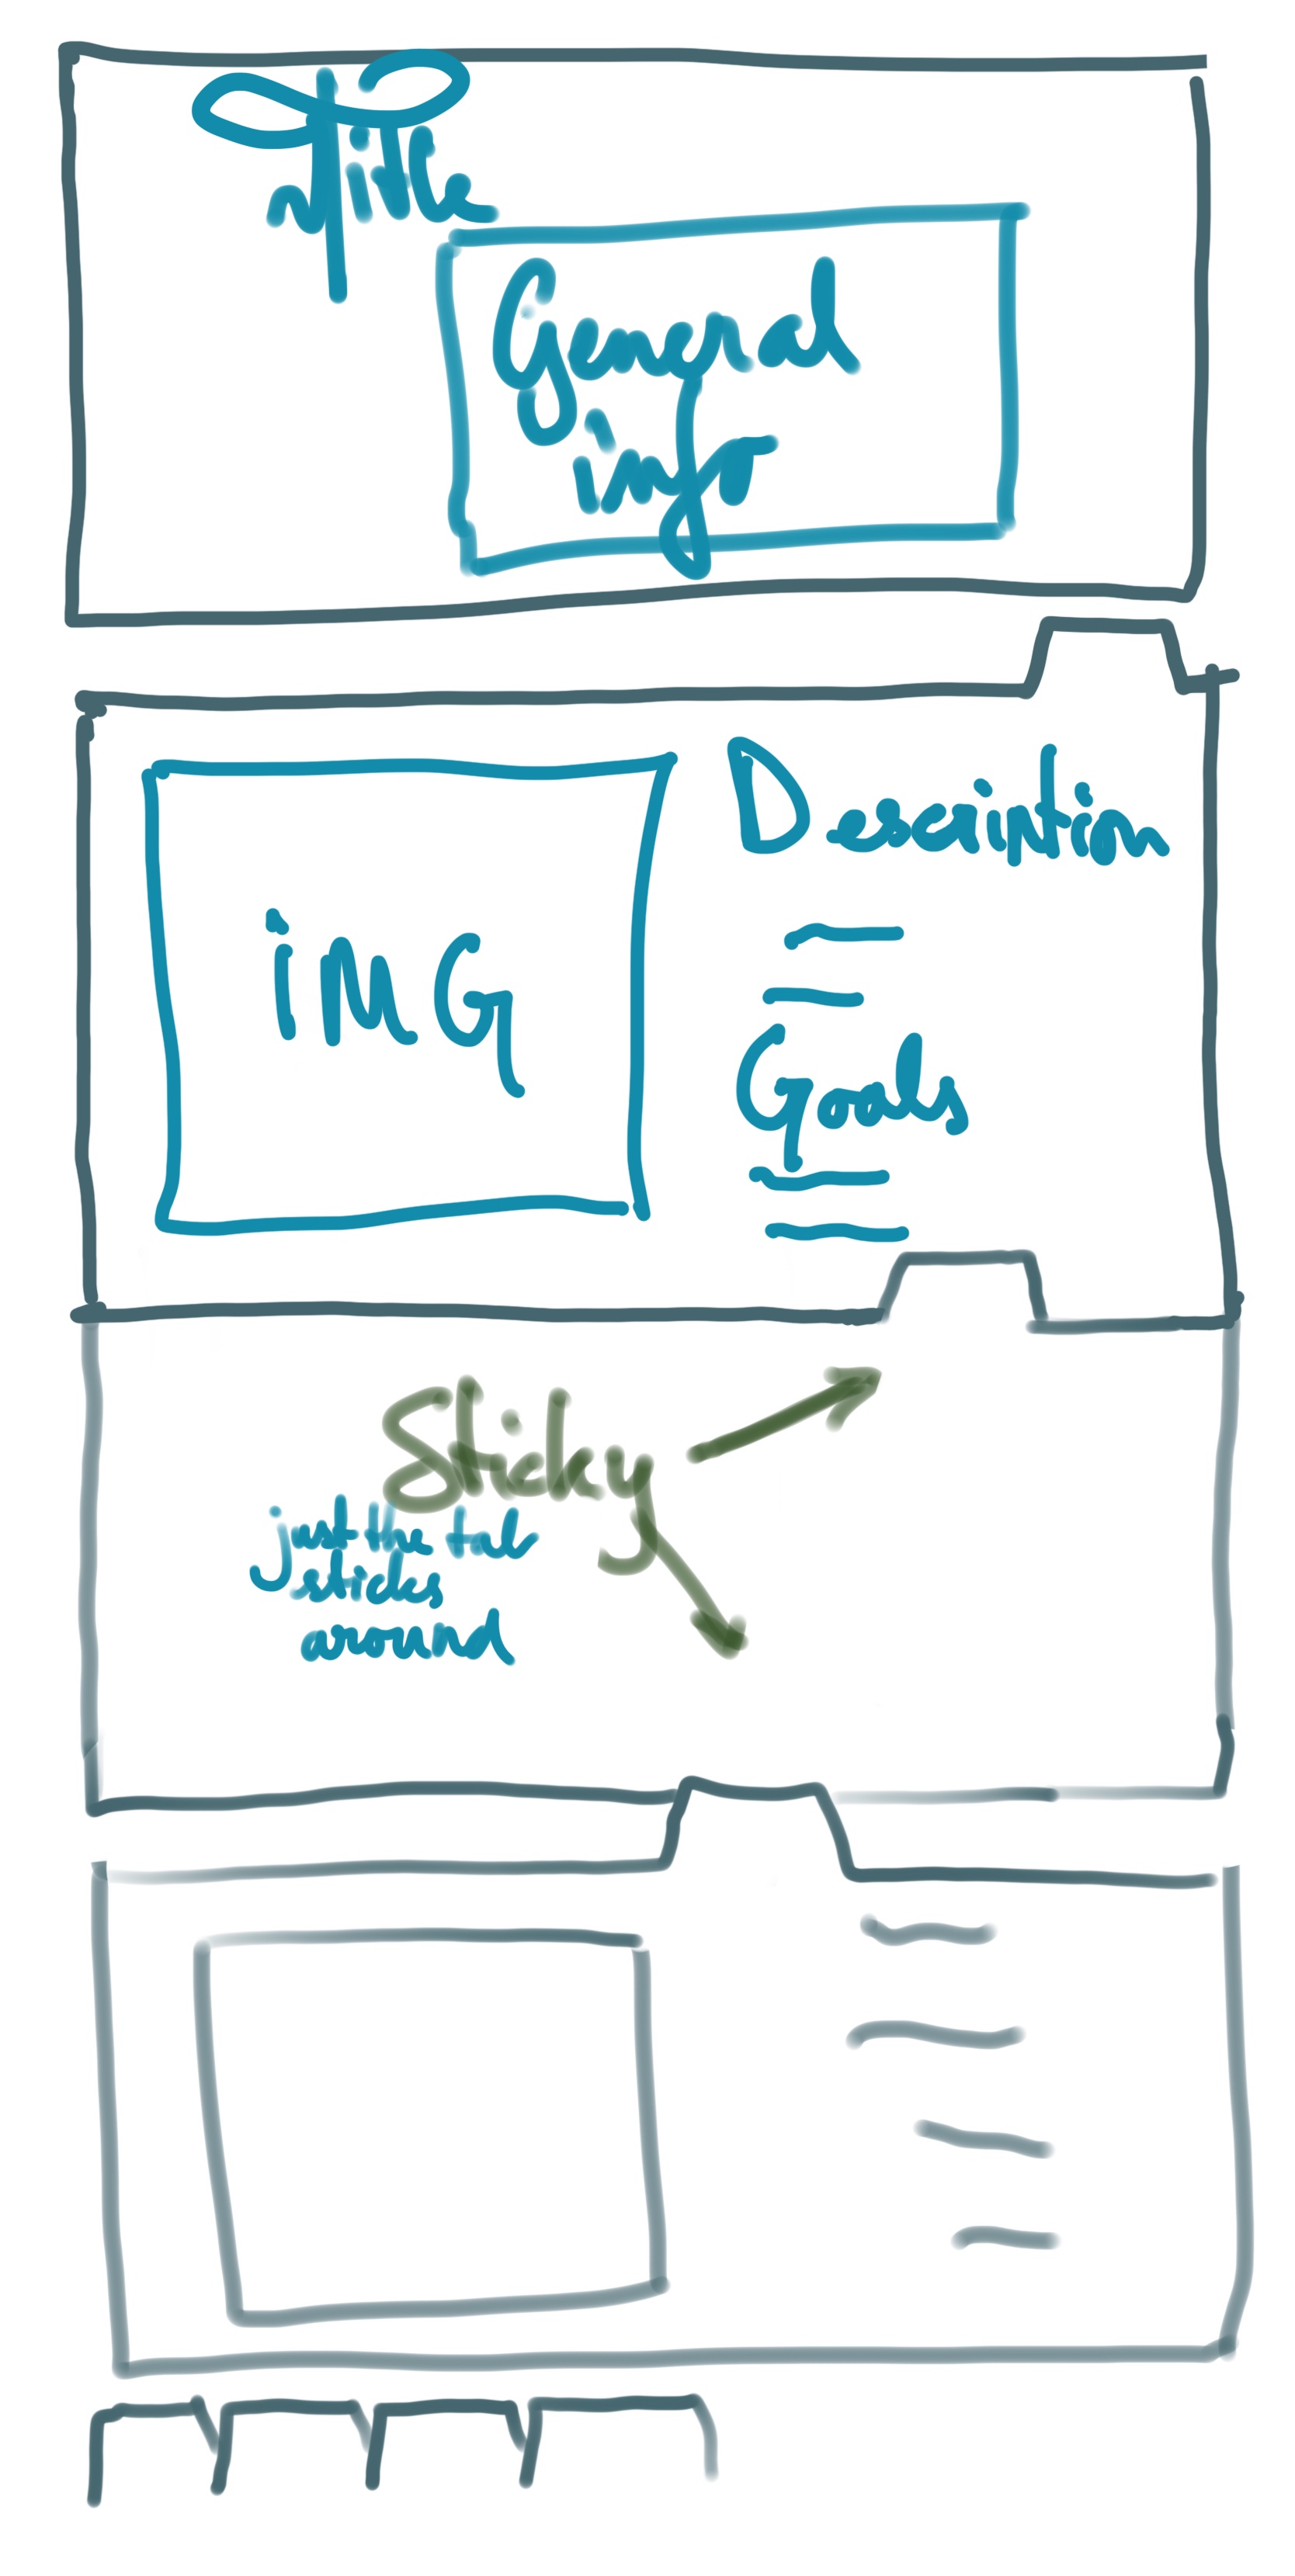 Title
General
info
Description
iMG
Goals
Sticky
just the tab
sticks
around